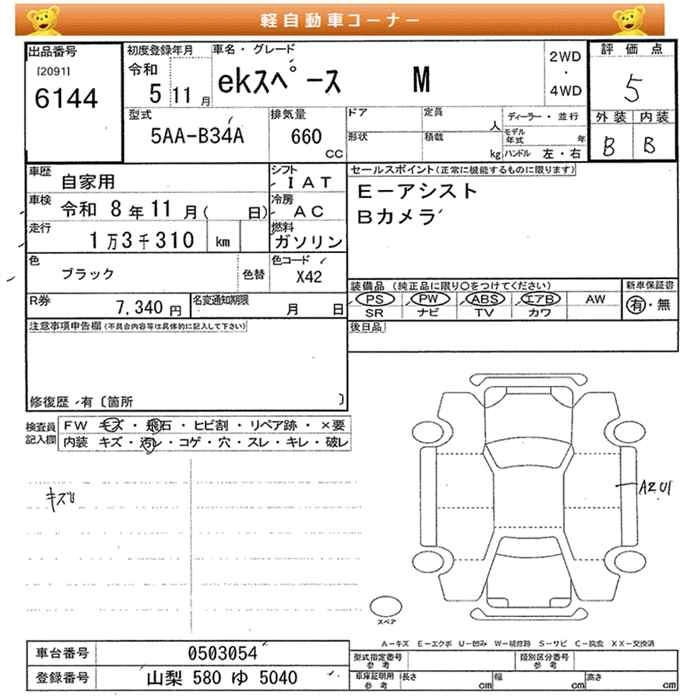 軽自動車コーナー
出品番号
[2091]
6144
初度登録年月
令和
5 11 月
車名・グレード
ekスペース M
2WD
・
4WD
評価点
5
外装 内装
B B
型式
5AA-B34A
排気量
660
CC
ドア
定員
人
形状
積載
kg
ディーラー・並行
モデル年式 年
ハンドル 左・右
車歴
自家用
シフト
IAT
車検
令和 8年 11月( 日)
冷房
AC
走行
1万3千310 km
燃料
ガソリン
色
ブラック
色替
色コード
X42
R券
7,340 円
名変通知期限
月 日
セールスポイント(正常に機能するものに限ります)
E-アシスト
Bカメラ
装備品(純正品に限り〇をつけてください)
PS PW ABS エアB AW
SR ナビ TV カワ
新車保証書
有・無
後日品
注意事項申告欄(不具合内容等は具体的に記入して下さい)
修復歴・有〔箇所 〕
検査員
記入欄
FW キズ・飛石・ヒビ割・リペア跡・×要
内装 キズ・汚レ・コゲ・穴・スレ・キレ・破レ
キズU
A2U1
スペア
A-キズ E-エクボ U-凹み W-補修跡 S-サビ C-腐食 XX-交換済
車台番号
0503054
登録番号
山梨 580 ゆ 5040
型式指定番号
参考
類別区分番号
参考
車庫証明用
参考
長さ cm
幅 cm
高さ cm